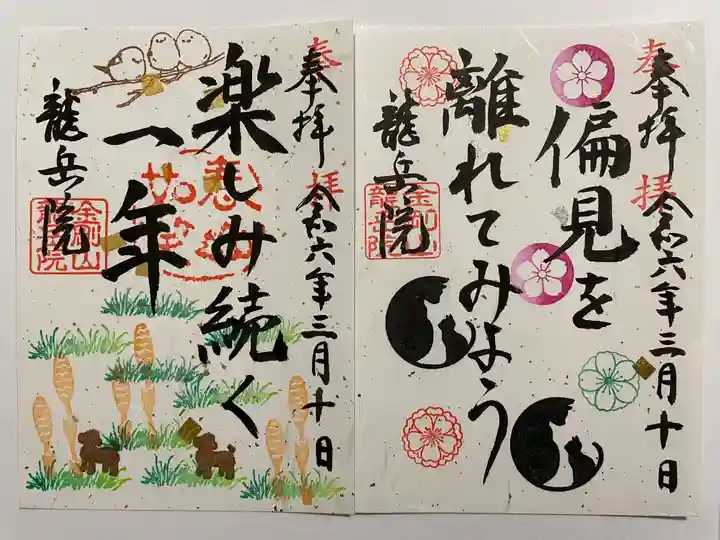 奉拝
令和六年三月十日
楽しみ続く
一年
龍岳院
金剛山
龍岳院
奉拝
令和六年三月十日
偏見を
離れてみよう
龍岳院
金剛山
龍岳院